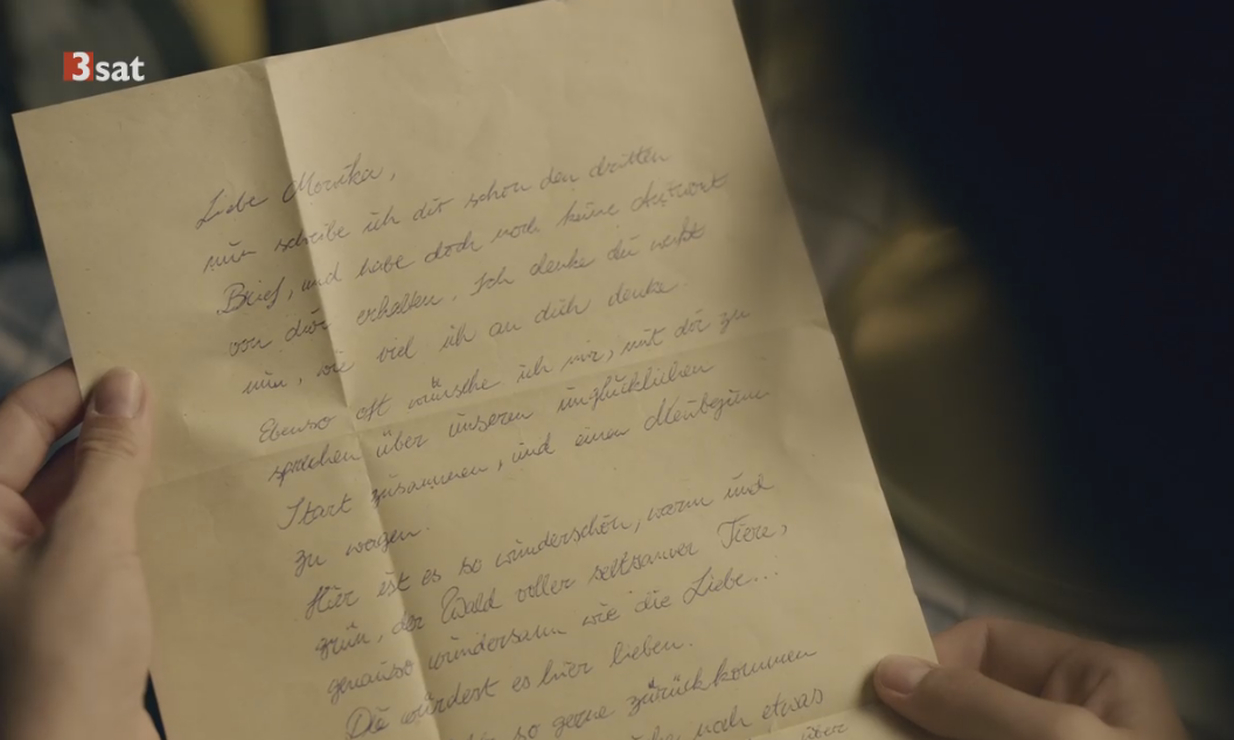 3sat
Liebe Monika,
nun schreibe ich dir schon den dritten
Brief, und habe doch noch keine Antwort
von dir erhalten. Ich denke du weißt
nun, wie viel ich an dich denke.
Ebenso oft wünsche ich mir, mit dir zu
sprechen über unseren unglücklichen
Start zusammen, und einen Neubeginn
zu wagen.
Hier ist es so wunderschön, warm und
grün, der Wald voller seltsamer Tiere,
genauso wundersam wie die Liebe...
Du würdest es hier lieben.
so gerne zurückkommen
noch etwas
über